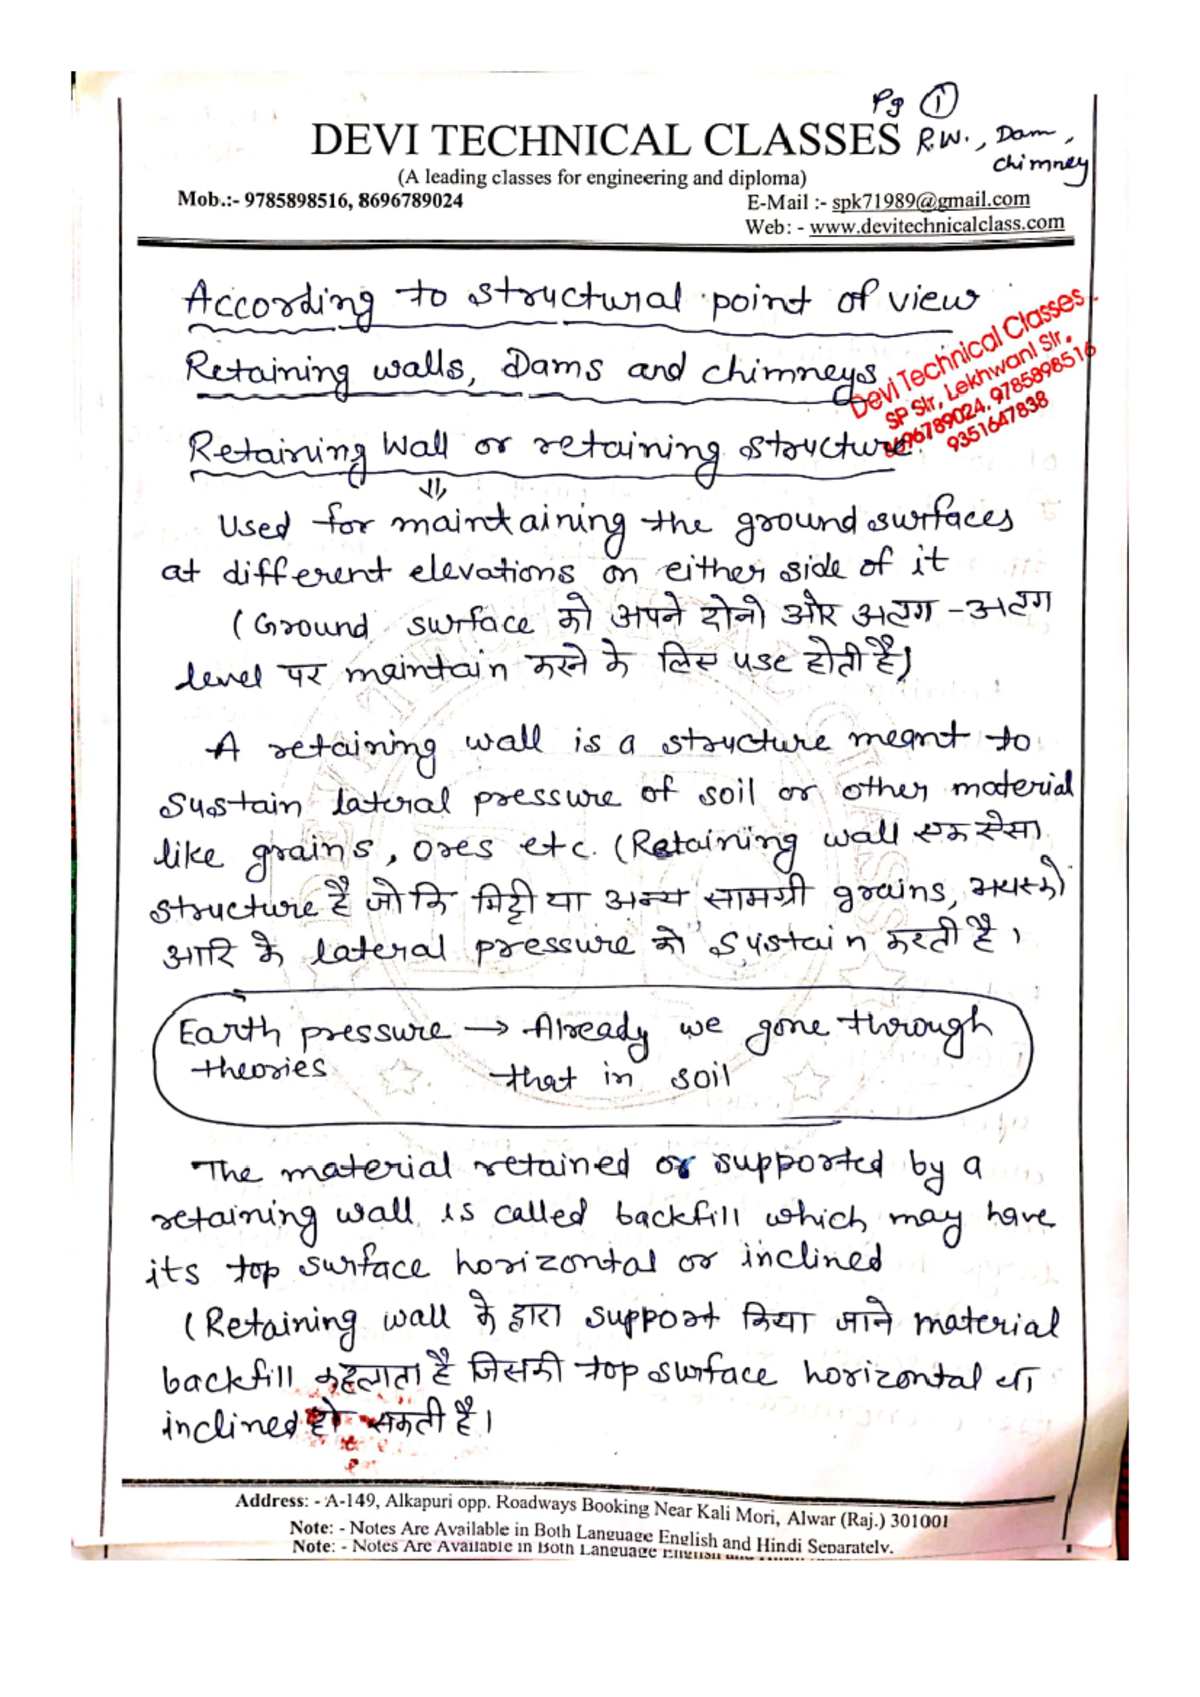 Pg ①
DEVI TECHNICAL CLASSES R.W., Dam,
chimney
(A leading classes for engineering and diploma)
Mob.:- 9785898516, 8696789024 E-Mail :- spk71989@gmail.com
Web: - www.devitechnicalclass.com
According to structural point of view
Retaining walls, Dams and chimneys
Devi Technical Classes
SP Sir, Lekhwani Sir.
8696789024. 9785898516
9351647838
Retaining wall or retaining structure
Used for maintaining the ground surfaces
at different elevations on either side of it
(Ground surface को अपने दोनो और अलग - अलग
level पर maintain करने के लिए use होती है)
A retaining wall is a structure meant to
sustain lateral pressure of soil or other material
like grains, ores etc. (Retaining wall एक ऐसा
structure है जो कि मिट्टी या अन्य सामग्री grains, अयस्को
आदि के lateral pressure को sustain करती है।
Earth pressure → Already we gone through
theories that in soil
The material retained or supported by a
retaining wall is called backfill which may have
its top surface horizontal or inclined
(Retaining wall के द्वारा support किया जाने material
backfill कहलाता है जिसकी top surface horizontal या
inclined हो सकती है।
Address: - A-149, Alkapuri opp. Roadways Booking Near Kali Mori, Alwar (Raj.) 301001
Note: - Notes Are Available in Both Language English and Hindi Separately.
Note: - Notes Are Available in Both Language English